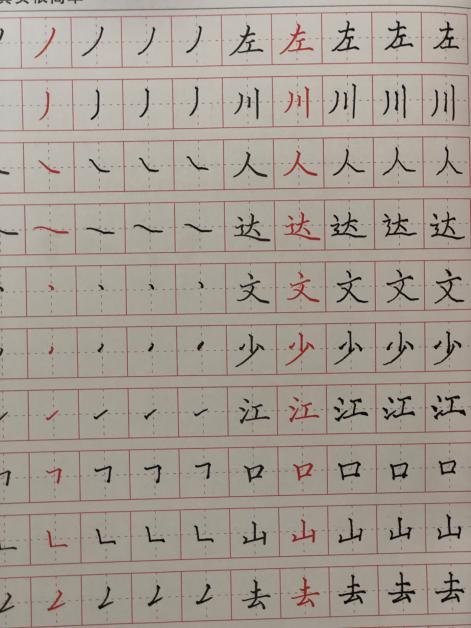 丿 丿 丿 丿 左 左 左 左 左
丿 丿 丿 丿 川 川 川 川 川
㇏ ㇏ ㇏ ㇏ 人 人 人 人 人
㇏ ㇏ ㇏ ㇏ 达 达 达 达 达
丶 丶 丶 丶 文 文 文 文 文
丶 丶 丶 丶 少 少 少 少 少
㇀ ㇀ ㇀ ㇀ 江 江 江 江 江
㇕ ㇕ ㇕ ㇕ 口 口 口 口 口
㇗ ㇗ ㇗ ㇗ 山 山 山 山 山
㇜ ㇜ ㇜ ㇜ 去 去 去 去 去